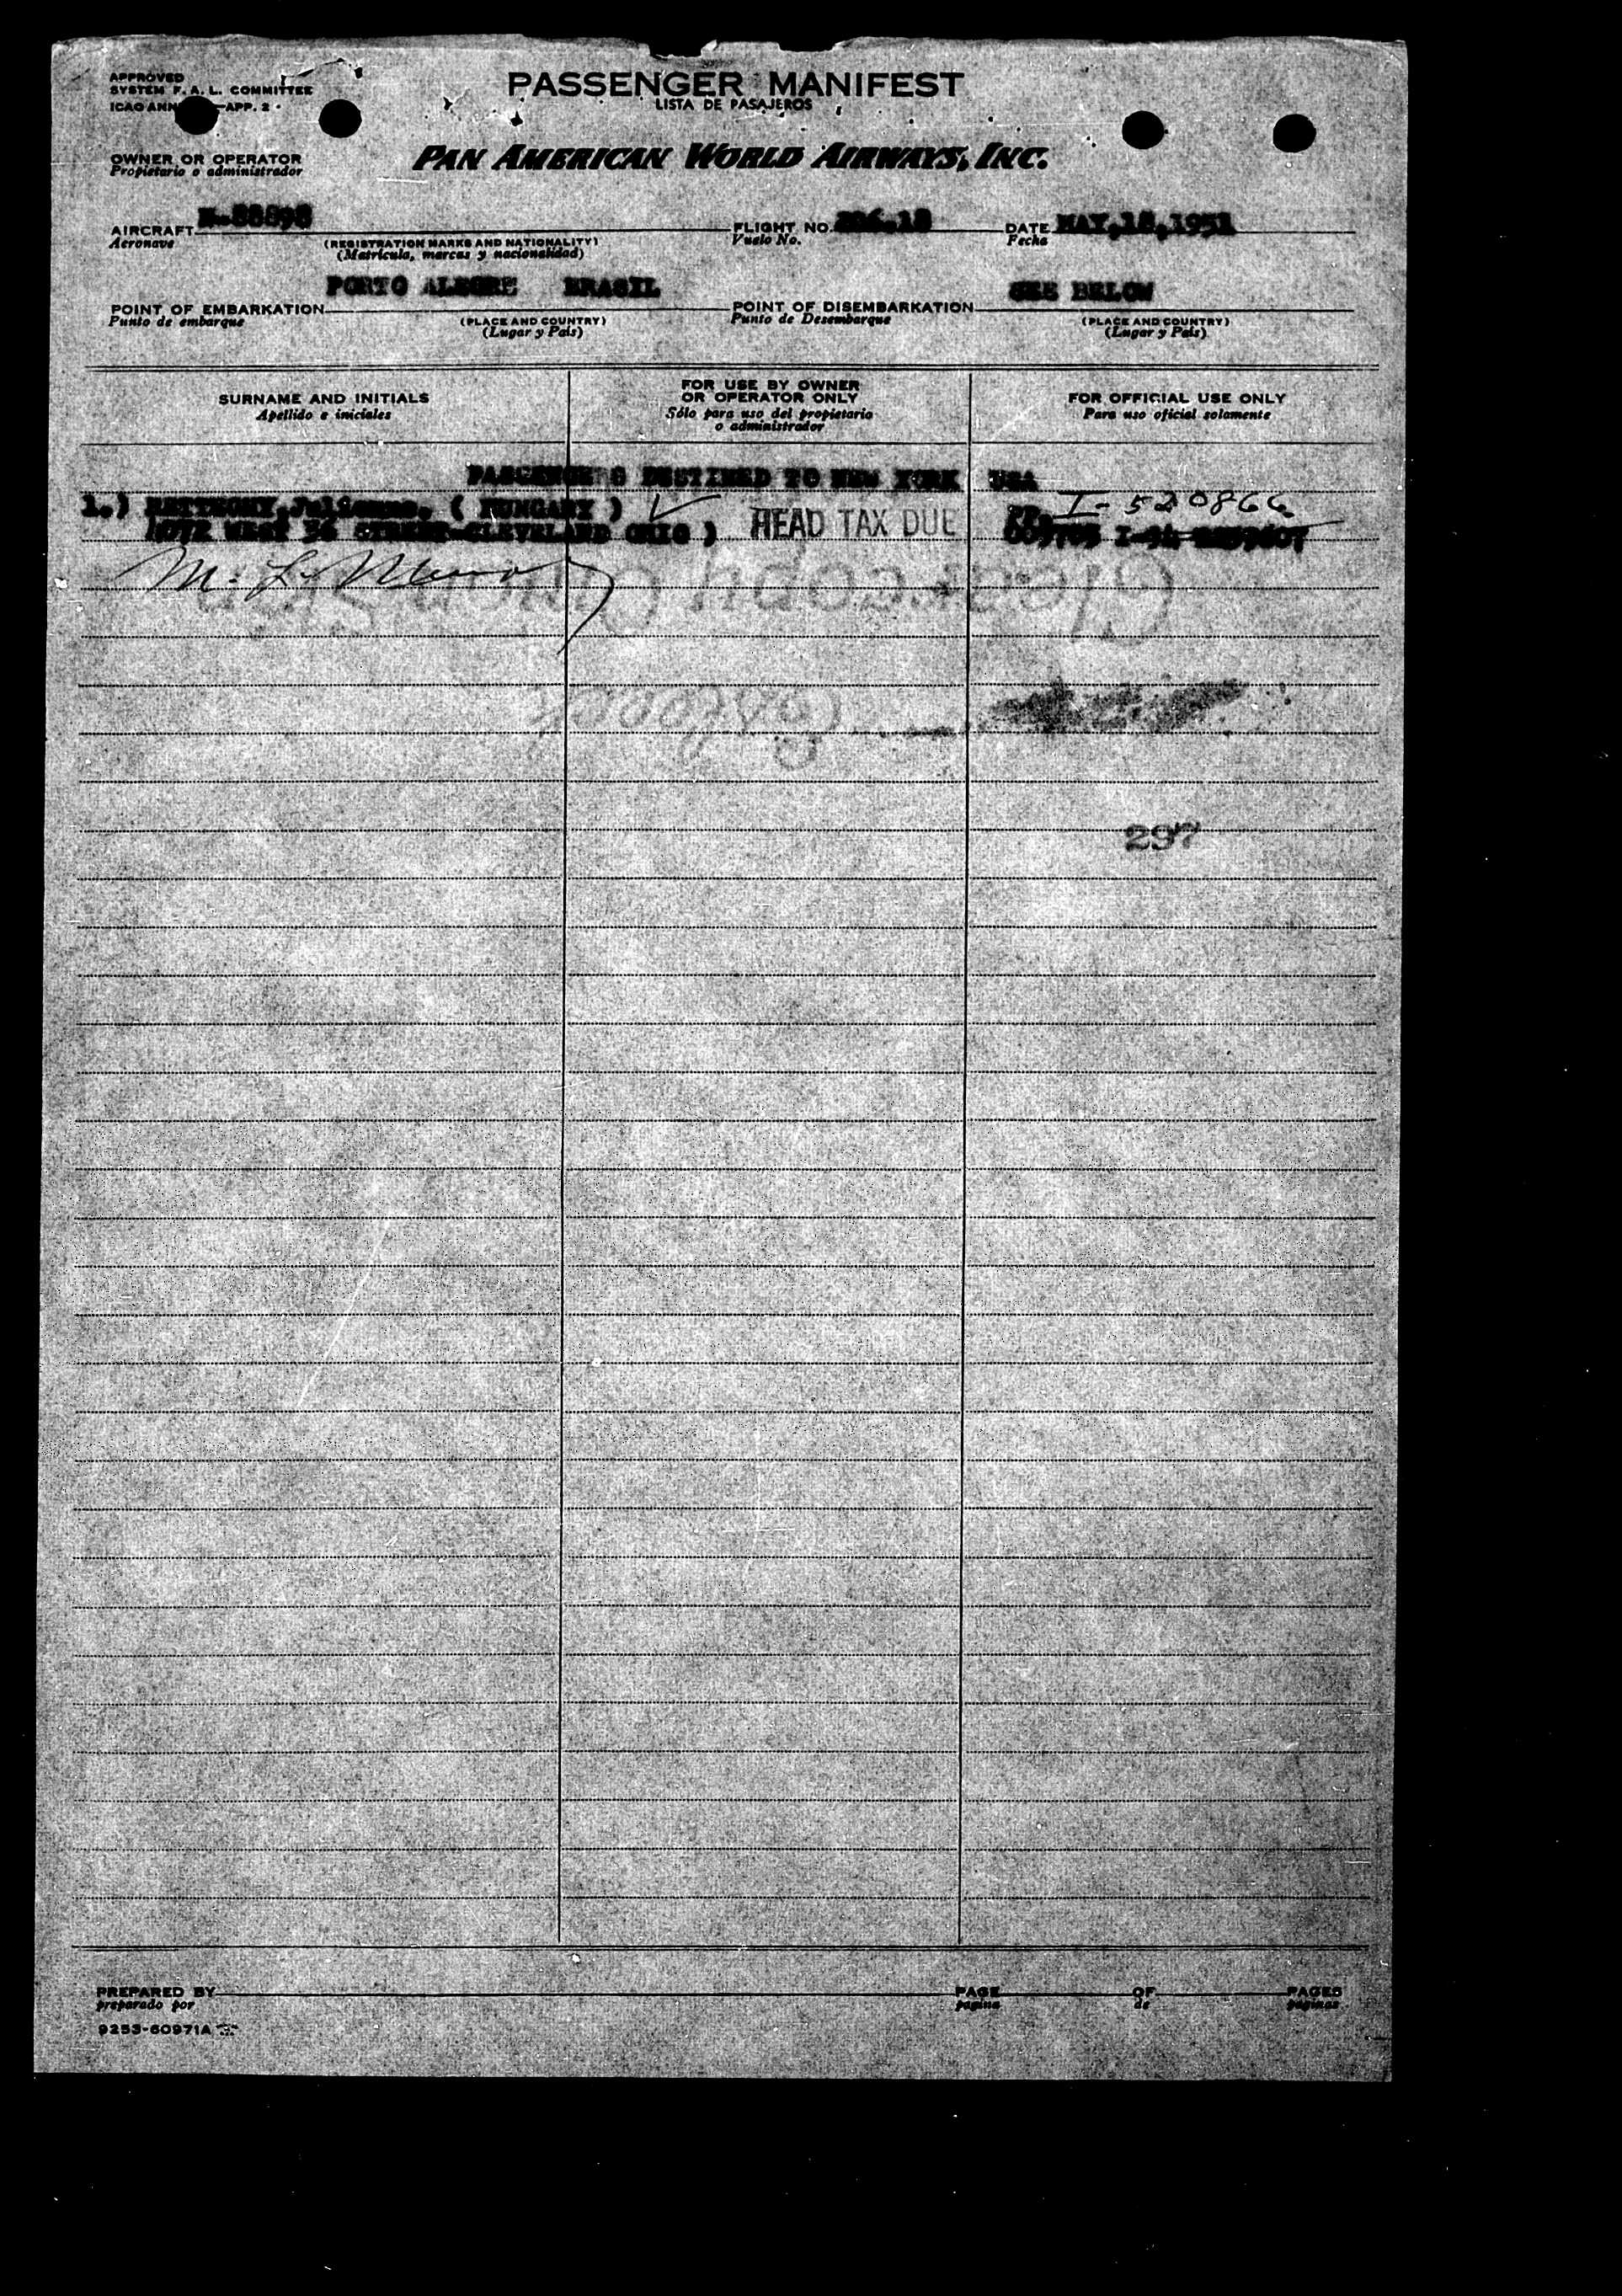 APPROVED
SYSTEM F. A. L. COMMITTEE
ICAO ANN APP. 2
PASSENGER MANIFEST
LISTA DE PASAJEROS
OWNER OR OPERATOR
Propietario o administrador
PAN AMERICAN WORLD AIRWAYS, INC.
AIRCRAFT N-88898 FLIGHT NO. 206.18 DATE MAY,18,1951
Aeronave (REGISTRATION MARKS AND NATIONALITY) Vuelo No. Fecha
(Matricula, marcas y nacionalidad)
POINT OF EMBARKATION PORTO ALEGRE BRASIL POINT OF DISEMBARKATION SEE BELOW
Punto de embarque (PLACE AND COUNTRY) Punto de Desembarque (PLACE AND COUNTRY)
(Lugar y País) (Lugar y País)
SURNAME AND INITIALS
Apellido e iniciales
FOR USE BY OWNER
OR OPERATOR ONLY
Sólo para uso del propietario
o administrador
FOR OFFICIAL USE ONLY
Para uso oficial solamente
PASSENGERS DESTINED TO NEW YORK USA
1.) ( HUNGARY ) I-520866
WEST 36 STREET-CLEVELAND OHIO ) HEAD TAX DUE I-94
297
PREPARED BY PAGE OF PAGES
preparado por pagina de paginas
9253-60971A